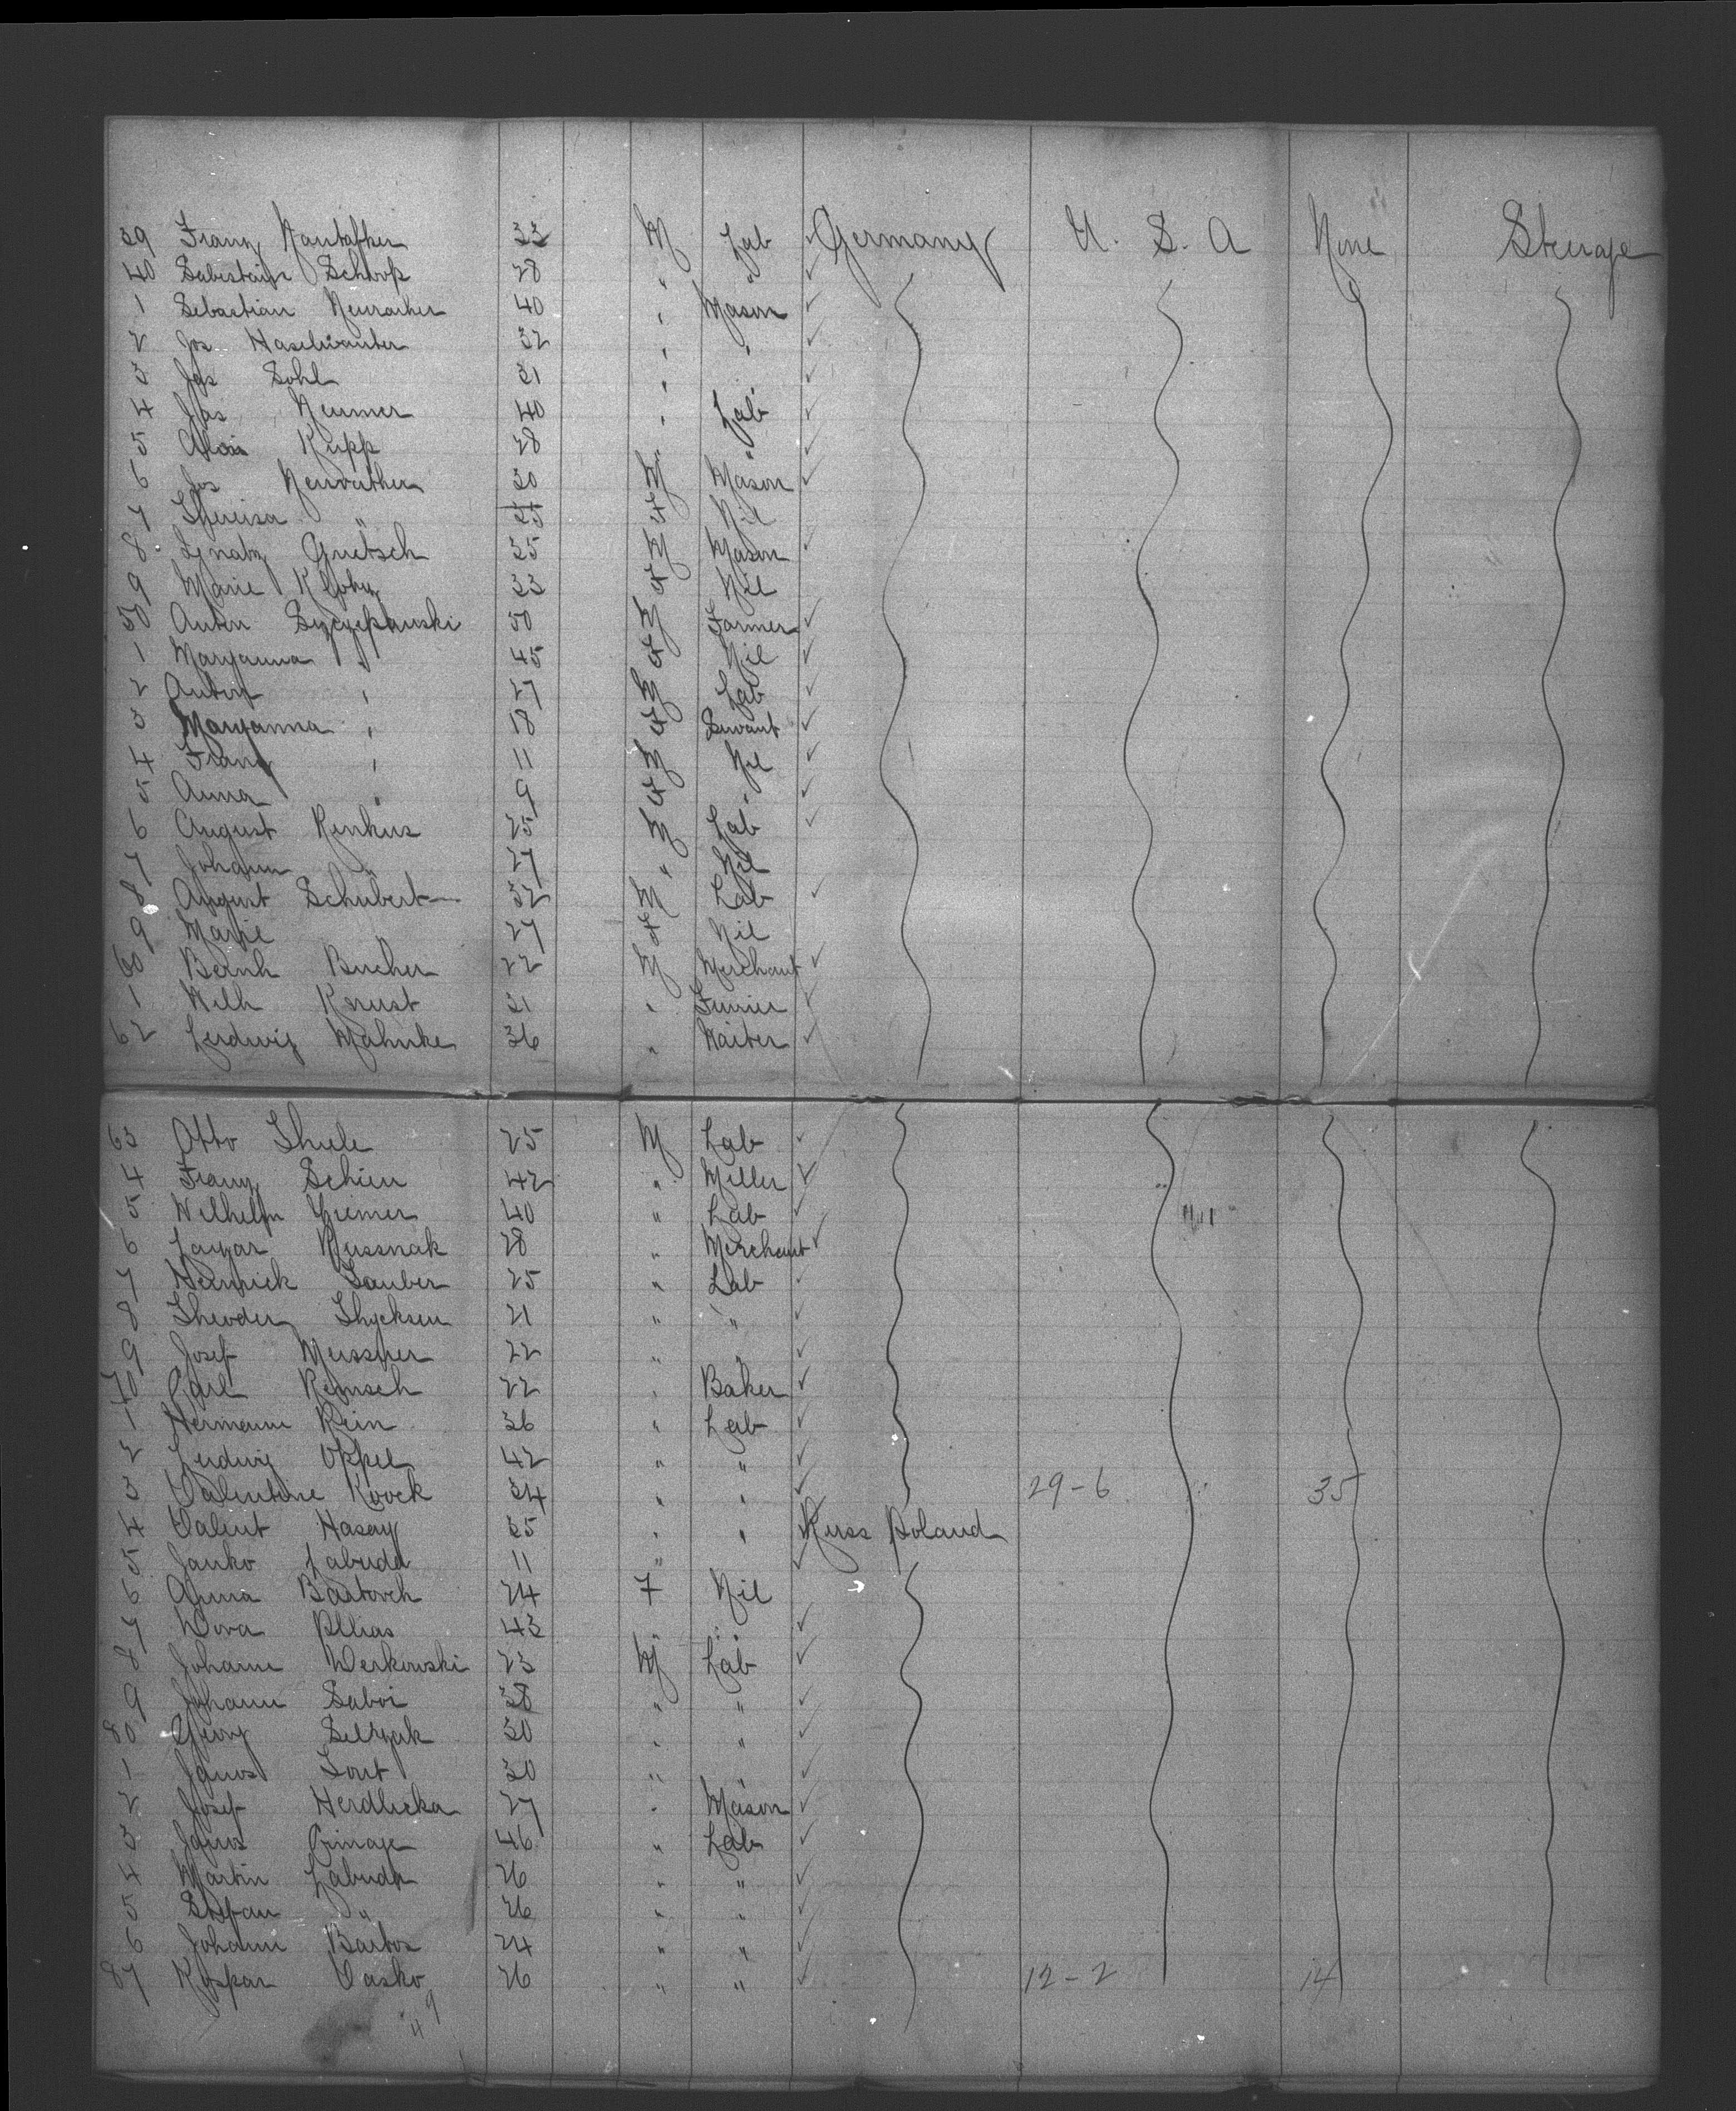 39 Franz 33 M Lab ✓ Germany U. S. A None Steerage
40 Schöpf 28 " " ✓
1 Sebastian Neurauter 40 " Mason ✓
2 Jos Haselwanter 32 " " ✓
3 Jos Sohl 31 " " ✓
4 Jos Neuner 40 " Lab ✓
5 Alois Rupp 28 " " ✓
6 Jos Neurauther 30 M Mason ✓
7 Theresa " 25 F Nil
8 Ignatz Gritsch 35 M Mason ✓
9 Marie 33 F Nil
50 Anton Szczepanski 50 M Farmer ✓
1 Maryanna " 45 F Nil ✓
2 Anton " 27 M Lab ✓
3 Maryanna " 18 F Servant ✓
4 Franz " 11 M Nil ✓
5 Anna " 9 F " ✓
6 August Renkus 25 M Lab ✓
7 Johann " 27 " Nil
8 August Schubert 32 M Lab ✓
9 Marie " 27 F Nil
60 Bernh Bucher 22 M Merchant ✓
1 Wilh Knust 31 " Furrier ✓
62 Ludwig Mahnke 36 " Waiter ✓
63 Otto Thiele 25 M Lab ✓
4 Franz Schien 42 " Miller ✓
5 Wilhelm 40 " Lab ✓
6 Lazar Russnak 28 " Merchant ✓
7 Heinrich Tauber 25 " Lab ✓
8 Theodor Thycksen 21 " " ✓
9 Josef Meissner 22 " " ✓
70 Carl Remsch 22 " Baker ✓
1 Hermann Rein 36 " Lab ✓
2 Ludwig Oppel 42 " " ✓
3 Valentine Koock 34 " " ✓ 29-6 35
4 Valent Hasay 35 " " Russ Poland
5 Janko Labuda 11 " ✓
6 Anna Bartoch 24 F Nil
7 Dora Ellias 43 " " ✓
8 Johann Werkowski 23 M Lab ✓
9 Johann Saboi 38 " " ✓
80 Georg 30 " " ✓
1 Janos Tout 30 " " ✓
2 Josef Herdlicka 27 " Mason ✓
3 Janos 46 " Lab ✓
4 Martin Labuda 26 " " ✓
5 Stefan " 26 " " ✓
6 Johann Bartos 24 " " ✓
87 Kaspar Vasko 26 " " ✓ 12-2 14